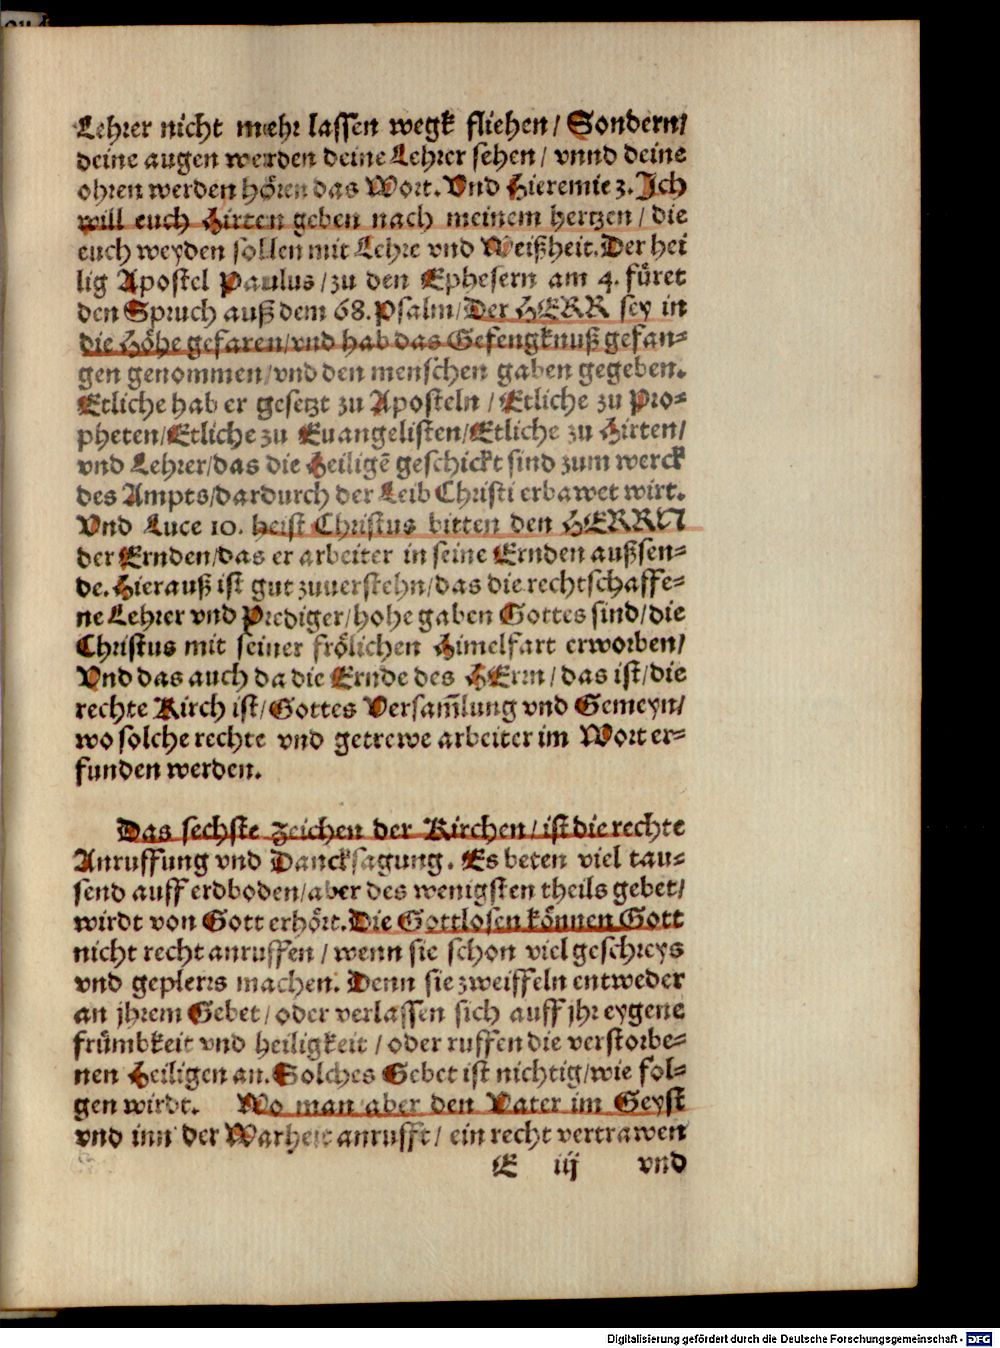 Lehrer nicht mehr lassen wegk fliehen/ Sondern/
deine augen werden deine Lehrer sehen/ vnnd deine
ohren werden hören das Wort. Vnd Hieremie 3. Ich
will euch Hirten geben nach meinem hertzen/ die
euch weyden sollen mit Lehre vnd Weißheit. Der hei
lig Apostel Paulus/ zu den Ephesern am 4. füret
den Spruch auß dem 68. Psalm/ Der HERR sey in
die Höhe gefaren/ vnd hab das Gefengknuß gefan-
gen genommen/ vnd den menschen gaben gegeben.
Etliche hab er gesetzt zu Aposteln/ Etliche zu Pro-
pheten/ Etliche zu Euangelisten/ Etliche zu Hirten/
vnd Lehrer/ das die Heiligē geschickt sind zum werck
des Ampts/ dardurch der Leib Christi erbawet wirt.
Vnd Luce 10. heist Christus bitten den HERRN
der Ernden/ das er arbeiter in seine Ernden außsen-
de. Hierauß ist gut zuuerstehn/ das die rechtschaffe-
ne Lehrer vnd Prediger/ hohe gaben Gottes sind/ die
Christus mit seiner frölichen Himelfart erworben/
Vnd das auch da die Ernde des HErrn/ das ist/ die
rechte Kirch ist/ Gottes Versam̄lung vnd Gemeyn/
wo solche rechte vnd getrewe arbeiter im Wort er-
funden werden.
Das sechste zeichen der Kirchen/ ist die rechte
Anruffung vnd Dancksagung. Es beten viel tau-
send auff erdboden/ aber des wenigsten theils gebet/
wirdt von Gott erhört. Die Gottlosen können Gott
nicht recht anruffen/ wenn sie schon viel geschreys
vnd geplerrs machen. Denn sie zweiffeln entweder
an jhrem Gebet/ oder verlassen sich auff jhr eygene
frümbkeit vnd heiligkeit/ oder ruffen die verstorbe-
nen Heiligen an. Solches Gebet ist nichtig/ wie fol-
gen wirdt. Wo man aber den Vater im Geyst
vnd inn der Warheit anrufft/ ein recht vertrawen
E iij vnd
Digitalisierung gefördert durch die Deutsche Forschungsgemeinschaft - DFG